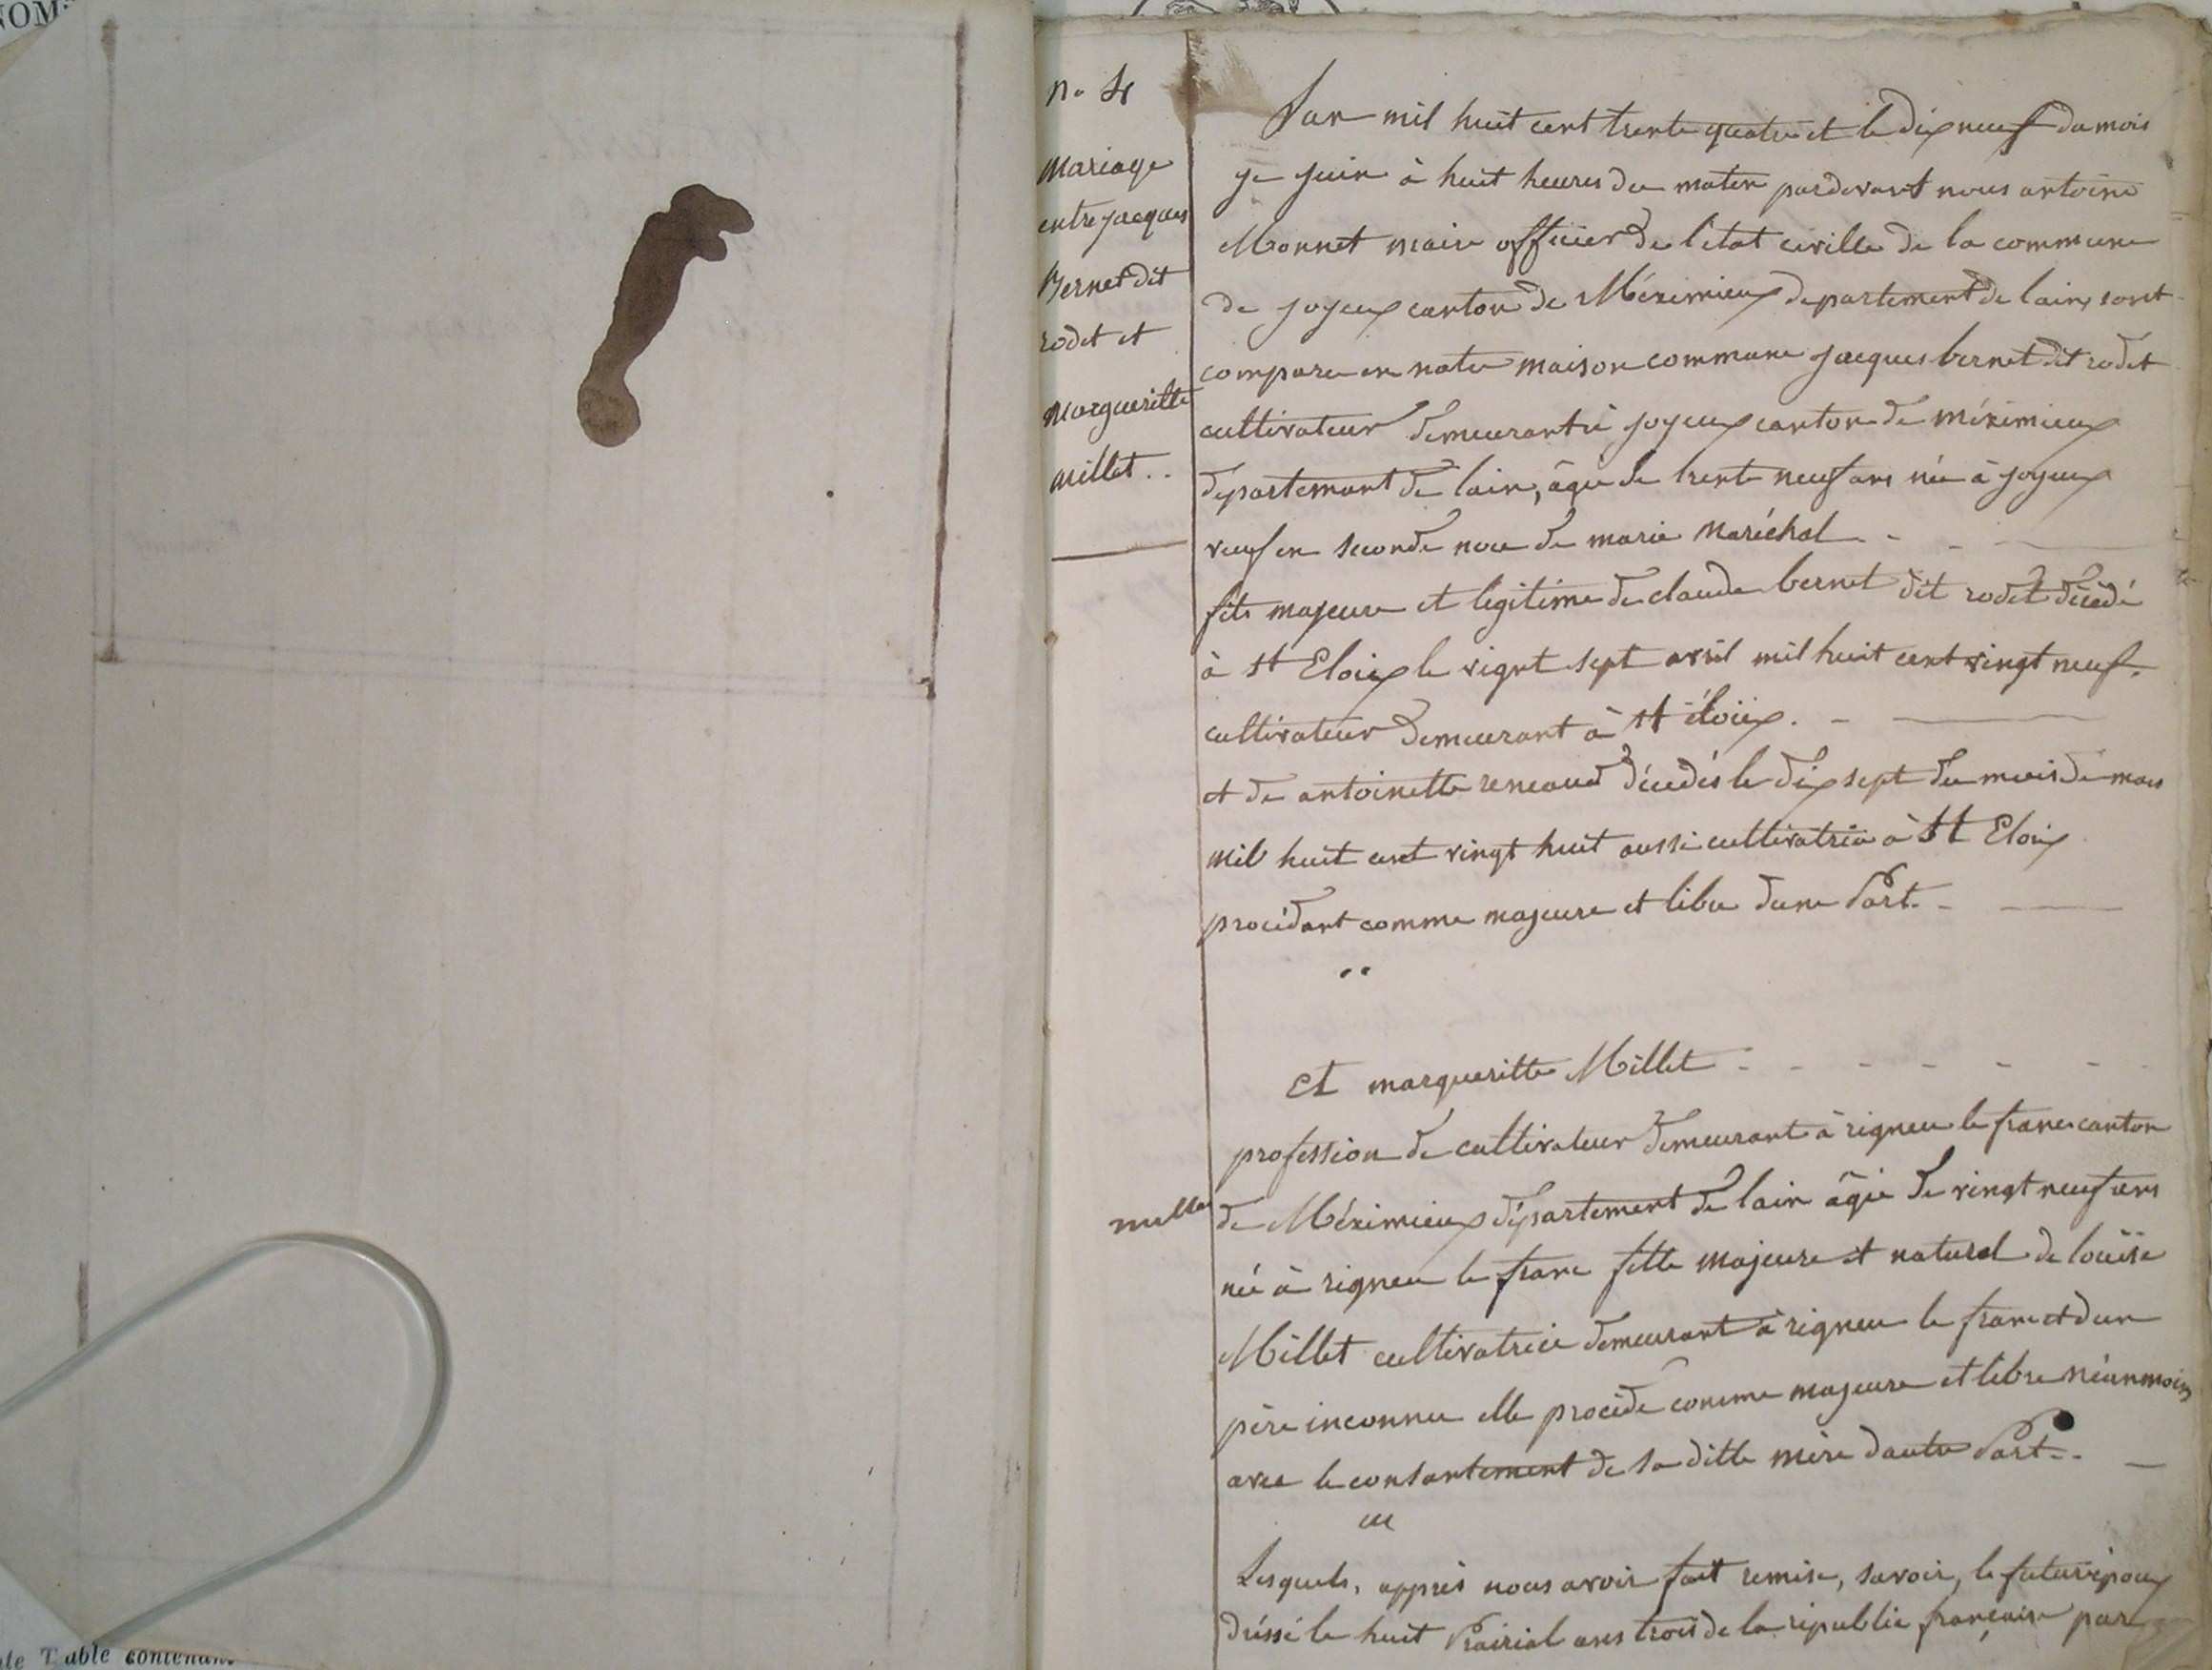 NOM
n. 4
Mariage
entre jacques
Bernet dit
rodet et
Margueritte
Millet..
L'an mil huit cent trente quatre et le dix neuf du mois
de juin à huit heures du matin pardevant nous antoine
Monnet maire officier de l'état civille de la commune
de joyeux canton de Méximieux departement de lain, sont
comparu en notre maison commune jacques bernet dit rodet
cultivateur demeurant à joyeux canton de méximieux
departement de lain, âgé de trente neuf ans née à joyeux
veuf en seconde noce de marie Maréchal
fils majeure et legitime de claude bernet dit rodet décédé
à St Eloix le vignt sept avril mil huit cent vingt neuf.
cultivateur demeurant à St éloix.
et de antoinette reneaud décédés le dix sept du mois de mars
mil huit cent vingt huit aussi cultivatrice à St Eloix
procédant comme majeure et libre dune Part.
Et margueritte Millet
profession de cultivateur demeurant à rigneu le franc canton
de Méximieux département de lain âgée de vingt neuf ans
née à rigneu le franc fille majeure et naturel de louise
Millet cultivatrice demeurant à rigneu le franc et dun
père inconnu elle procède comme majeure et libre néanmoins
avec le consantement de sa ditte mère dautre Part..
Lesquels, apprès nous avoir fait remise, savoir, le futur époux
dréssé le huit Prairial ans trois de la républic française par
de Table contenant